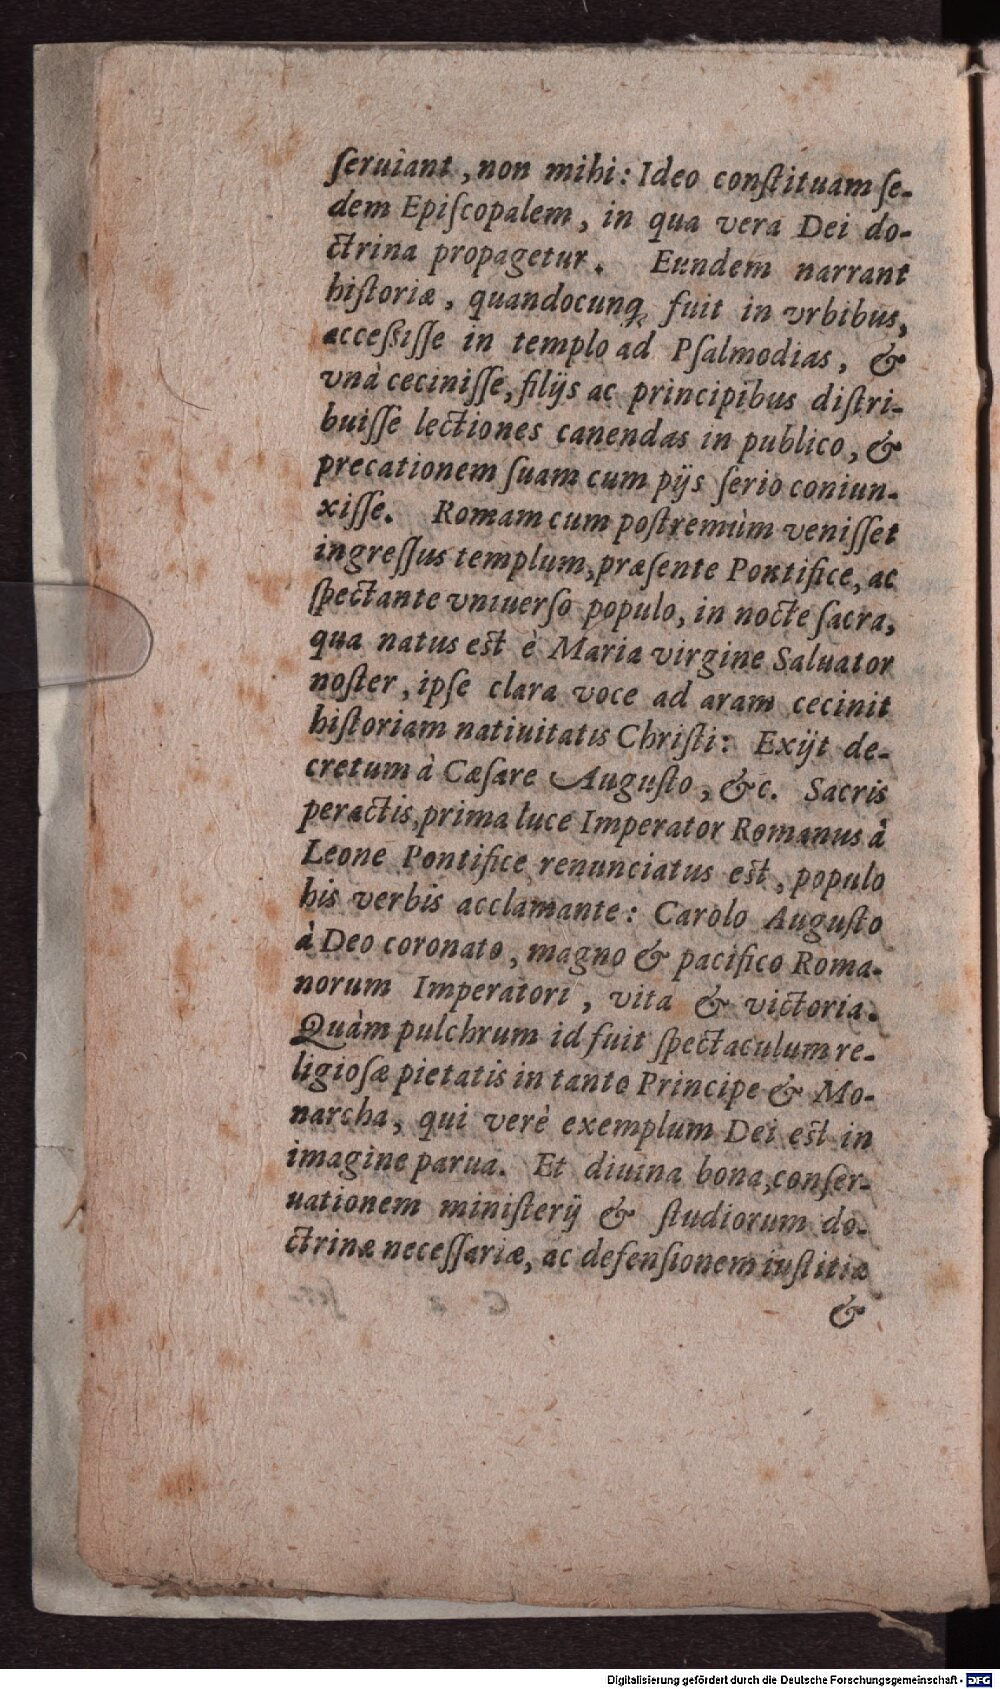 ſeruiant, non mihi: Ideo conſtituam ſe-
dem Epiſcopalem, in qua vera Dei do-
ctrina propagetur. Eundem narrant
hiſtoriæ, quandocunq; fuit in vrbibus,
acceſſiſſe in templo ad Pſalmodias, &
vnà ceciniſſe, filijs ac principibus diſtri-
buiſſe lectiones canendas in publico, &
precationem ſuam cum pijs ſerio coniun-
xiſſe. Romam cum poſtremùm veniſſet
ingreſſus templum, præſente Pontifice, ac
ſpectante vniuerſo populo, in nocte ſacra,
qua natus eſt è Maria virgine Saluator
noſter, ipſe clara voce ad aram cecinit
hiſtoriam natiuitatis Chriſti: Exijt de-
cretum à Cæſare Auguſto, &c. Sacris
peractis, prima luce Imperator Romanus à
Leone Pontifice renunciatus eſt, populo
his verbis acclamante: Carolo Auguſto
à Deo coronato, magno & pacifico Roma-
norum Imperatori, vita & victoria.
Quàm pulchrum id fuit ſpectaculum re-
ligioſæ pietatis in tanto Principe & Mo-
narcha, qui verè exemplum Dei eſt in
imagine parua. Et diuina bona, conſer-
uationem miniſterij & ſtudiorum do-
ctrinæ neceſſariæ, ac defenſionem iuſtitiæ
&
Digitalisierung gefördert durch die Deutsche Forschungsgemeinschaft - DFG